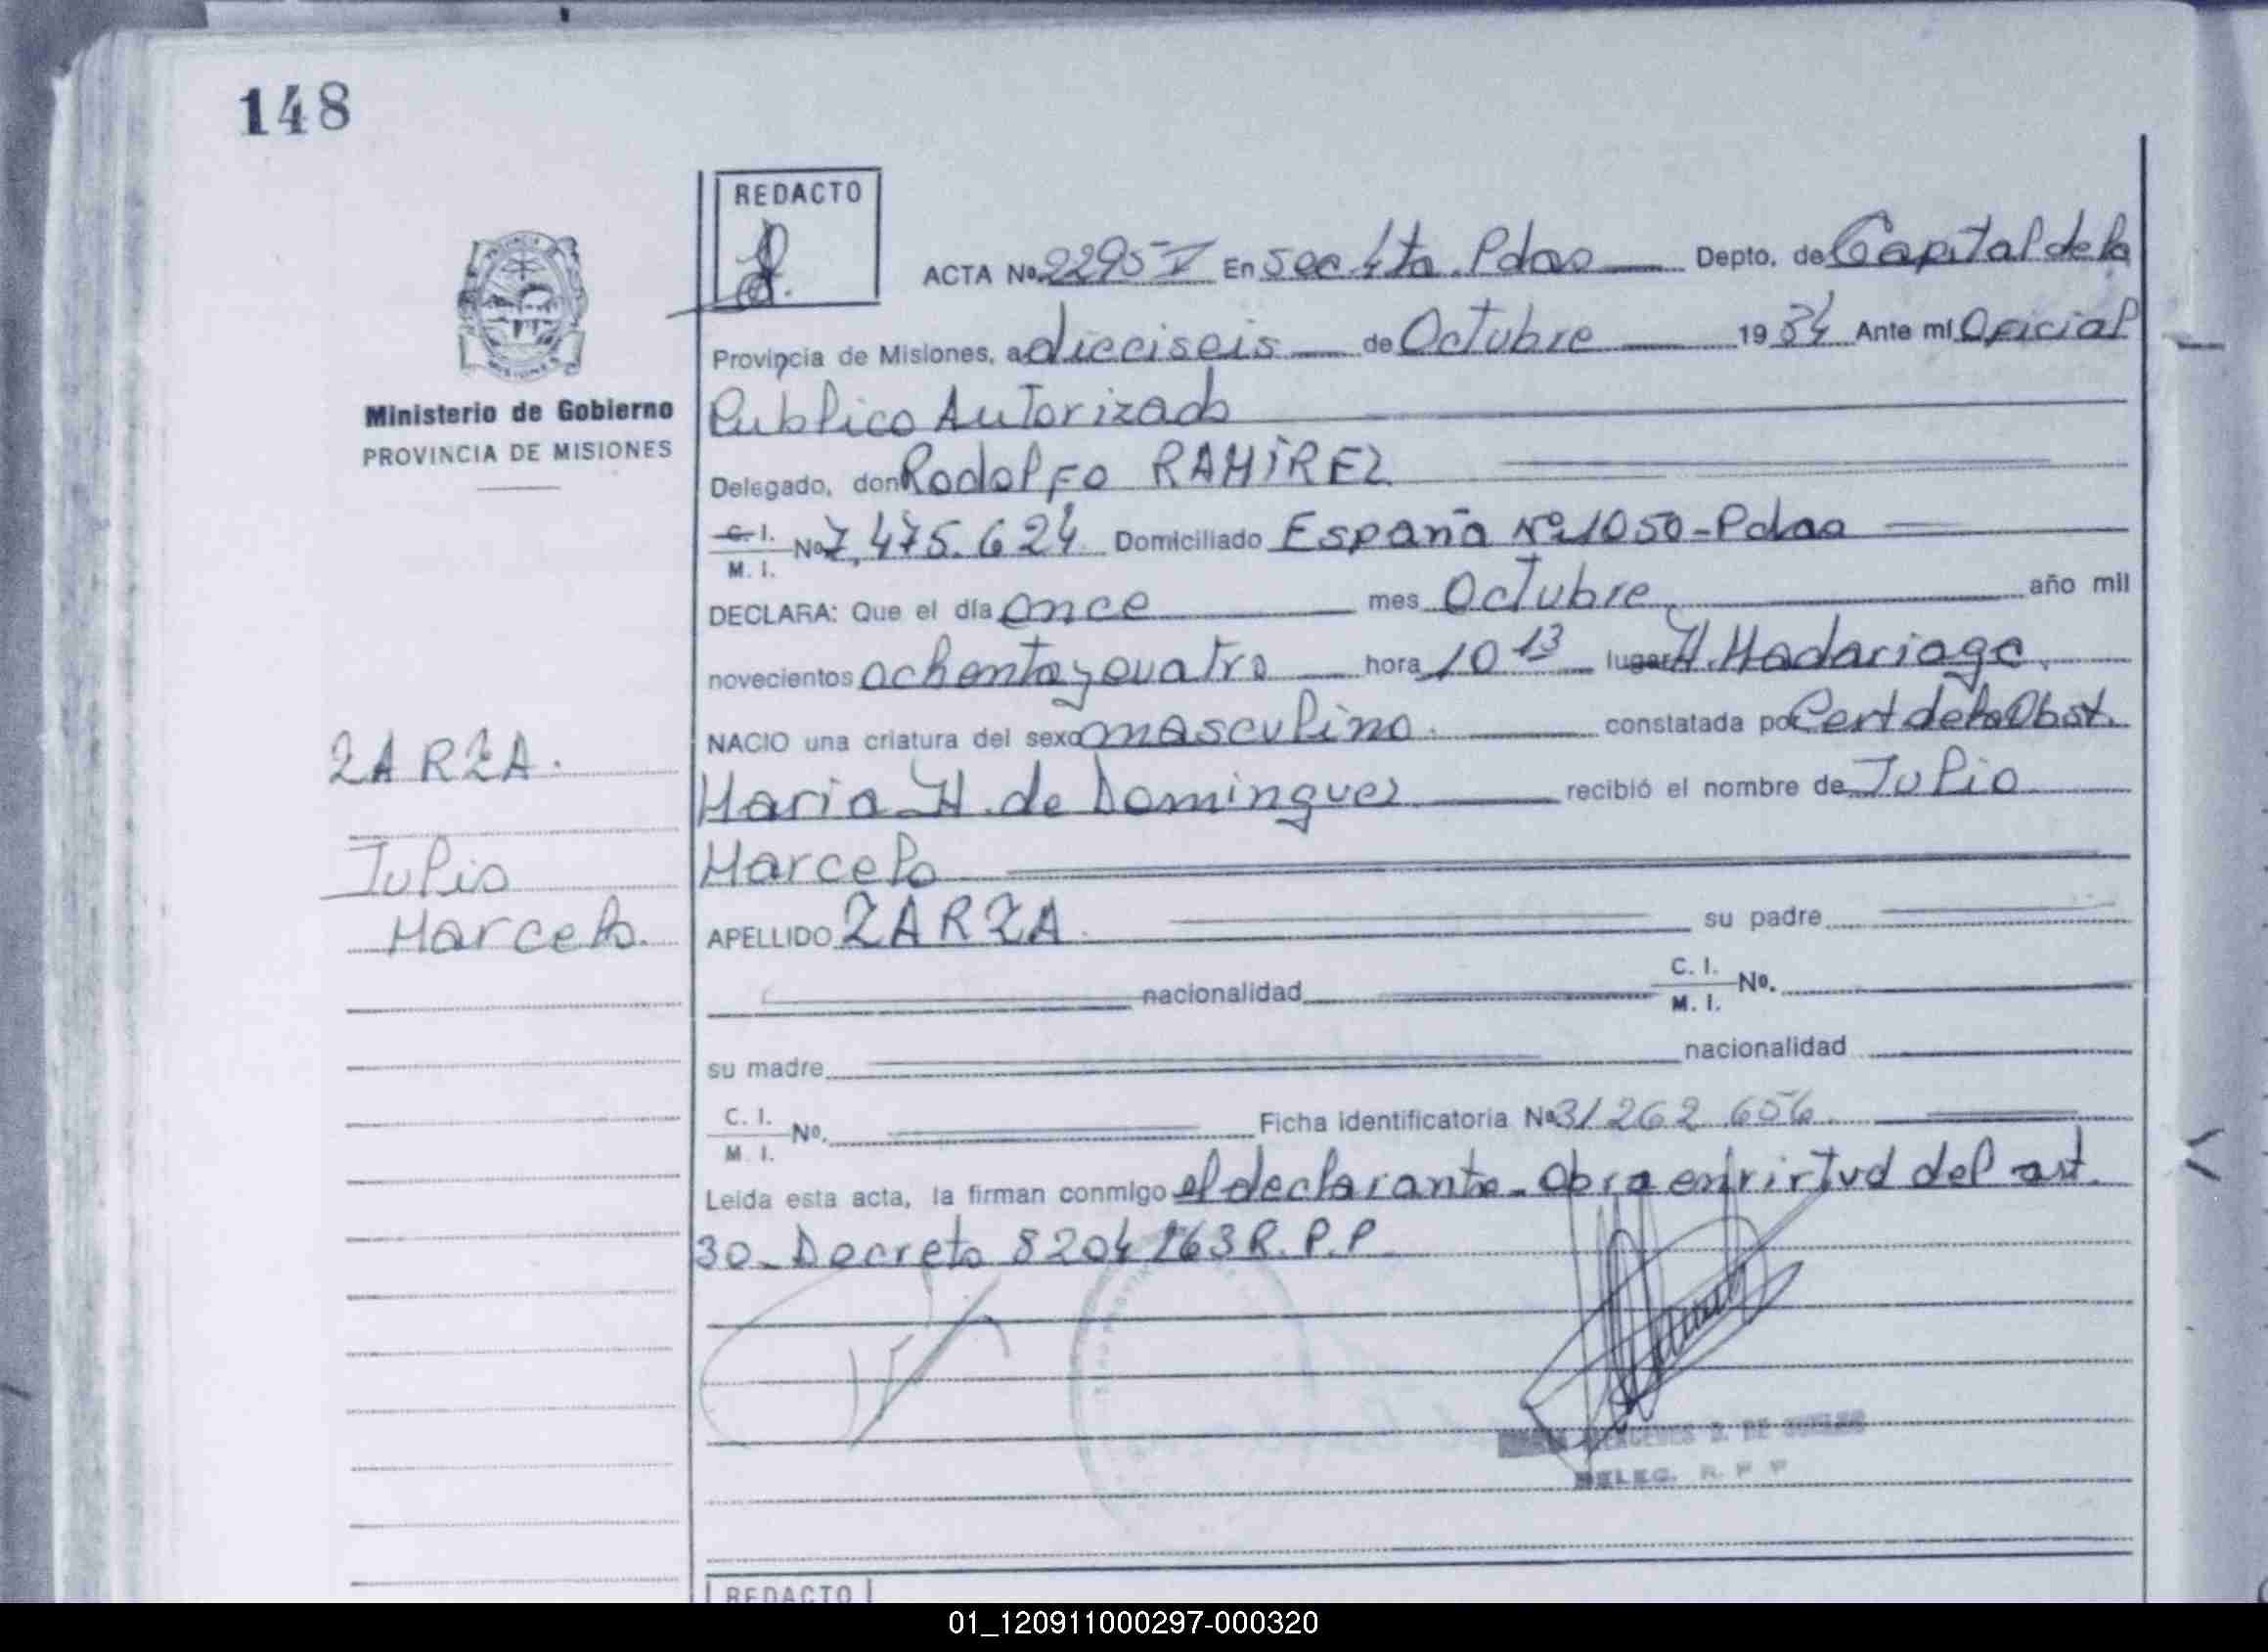 148
REDACTO
ACTA Nº 2295 V En Sec 4ta. Pdas Depto. de Capital de la
Provincia de Misiones, a dieciseis de Octubre 1984 Ante mí Oficial
Publico Autorizado
Ministerio de Gobierno
PROVINCIA DE MISIONES
Delegado, don Rodolfo RAMIREZ
C. I. M. I. Nº 7.475.624 Domiciliado España Nº 1050 - Pdas
DECLARA: Que el día once mes Octubre año mil
novecientos ochenta y cuatro hora 10 13 lugar H. Madariaga
NACIO una criatura del sexo masculino. constatada por Cert de la Obst.
ZARZA.
Maria H. de Dominguez recibió el nombre de Julio
Julio
Marcelo
Marcelo.
APELLIDO ZARZA. su padre
nacionalidad C. I. M. I. Nº.
su madre nacionalidad
C. I. M. I. Nº. Ficha identificatoria Nº 31262.656
Leída esta acta, la firman conmigo el declarante. Obra en virtud del art.
30 - Decreto 8204/63 R.P.P
DE
DELEG. R. P. P
REDACTO
01_120911000297-000320